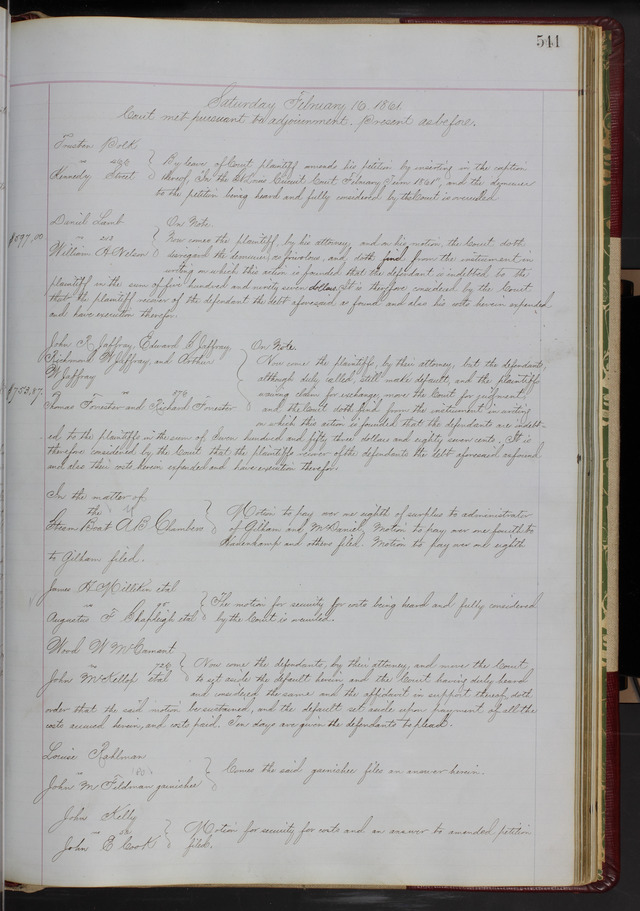 541
Saturday February 16, 1861.
Court met pursuant to adjournment. Present as before.
Truston Polk
"
Kennedy Street
By leave of Court plaintiff amends his petition by inserting in the caption
thereof, "In the St Louis Circuit Court February Term 1861", and the demurrer
to the petition being heard and fully considered by the Court is overruled
$597.00
Daniel Lamb
"
William H Nelson
On Note.
Now comes the plaintiff, by his attorney, and on his motion, the Court doth
disregard the demurrer, as frivolous, and doth find from the instrument in
writing on which this action is founded that the defendant is indebted to the
plaintiff in the sum of five hundred and ninety seven dollars, It is therefore considered by the Court
that the plaintiff recover of the defendant the debt aforesaid so found and also his costs herein expended
and have execution therefor.
$753.87
John R Jaffray, Edward S Jaffray
Richmond W Jaffray, and Arthur
W Jaffray
Thomas Forrester and Richard Forrester
On Note.
Now come the plaintiffs, by their attorney, but the defendants,
although duly called, still make default, and the plaintiffs
waiving claim for exchange, move the Court for judgment,
and the Court doth find from the instrument in writing
on which this action is founded that the defendants are indebt-
ed to the plaintiffs in the sum of Seven hundred and fifty three dollars and eighty seven cents. It is
therefore considered by the Court that the plaintiffs recover of the defendants the debt aforesaid so found
and also their costs herein expended and have execution therefor.
In the matter of
the
Steam Boat A B Chambers
Motion to pay over one eighth of surplus to administrator
of Gilham and McDaniel, Motion to pay over one fourth to
Hanenkamp and others filed. Motion to pay over one eighth
to Gilham filed.
James H Milliken etal
"
Augustus F Shapleigh etal
The motion for security for costs being heard and fully considered
by the Court is overruled.
Wood W McCamant
"
John McKellop etal
Now come the defendants, by their attorney, and move the Court
to set aside the default herein, and the Court having duly heard
and considered the same and the affidavit in support thereof, doth
order that the said motion be sustained, and the default set aside upon payment of all the
costs accrued herein, and costs paid. Ten days are given the defendants to plead.
Louise Kahlman
"
John M Feldman garnishee
Comes the said garnishee files an answer herein.
John Kelly
"
John B Cook
Motion for security for costs and an answer to amended petition
filed.